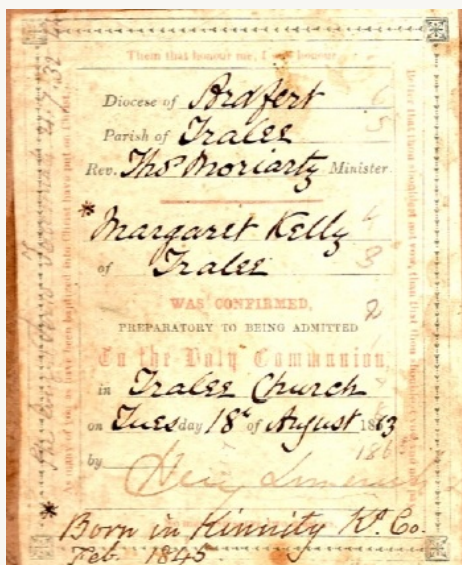 Them that honour me, I will honour
Diocese of Ardfert 6
Parish of Tralee 5
Rev. Thos Moriarty Minister.
* Margaret Kelly 4
of Tralee 3
WAS CONFIRMED, 2
PREPARATORY TO BEING ADMITTED
To the Holy Communion,
in Tralee Church
on Tuesday 18th of August 1863
186
by Henry Limerick
* Born in Kinnity Ks. Co.
Feb. 1845.
As many of you as have been baptized into Christ have put on Christ
Better that thou shouldest not vow, than that thou shouldest vow and not pay